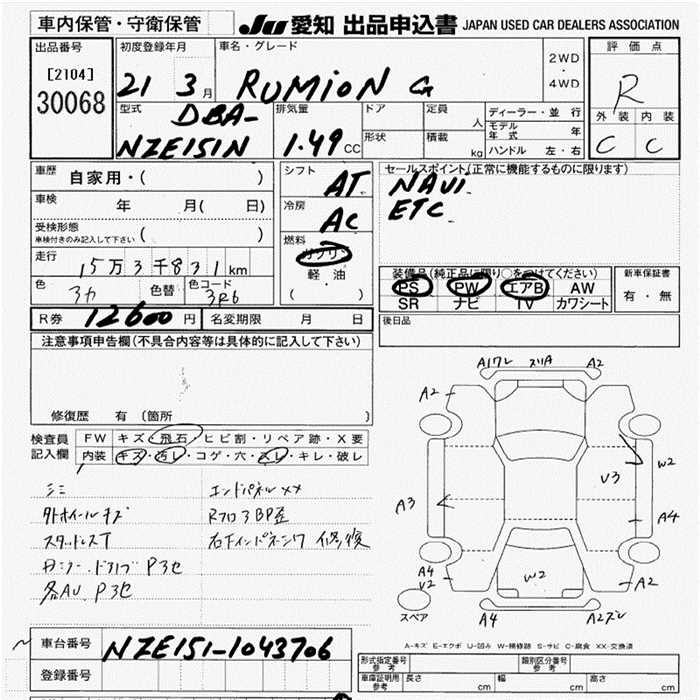 車内保管・守衛保管 JU 愛知 出品申込書 JAPAN USED CAR DEALERS ASSOCIATION
出品番号 初度登録年月 車名・グレード 評価点
[2104] 21 3月 RUMION G 2WD・4WD R
30068
型式 DBA- 排気量 ドア 定員 人 ディーラー・並行 外装 内装
NZE151N 1.49CC 形状 積載 kg モデル年式 年 C C
ハンドル 左・右
車歴 自家用・( ) シフト AT セールスポイント(正常に機能するものに限ります)
車検 年 月( 日) 冷房 AC NAVi
受検形態 ETC
車検付きのみ記入して下さい ( ) 燃料
走行 15万3千831km ガソリン
軽・油 装備品(純正品に限り○をつけてください) 新車保証書
色 色替 色コード ( ) PS PW エアB AW 有・無
3R6 SR ナビ TV カワシート
R券 12600円 名変期限 月 日 後日品
注意事項申告欄(不具合内容等は具体的に記入して下さい)
修復歴 有(箇所 )
検査員 FW キズ・飛石・ヒビ割・リペア跡・X要
記入欄 内装 キズ・汚レ・コゲ・穴・スレ・キレ・破レ
エンドパネルXX
外ホイールキズ Rフロア3BP歪
スタッドレスT 右下インパネ 修復
P3セ
各AU P3セ
A17レ スリA A2
A2
W2
U3
A3 A4
A4
V2 W2 A2
スペア A4 A2ズレ
A-キズ E-エクボ U-凹み W-補修跡 S-サビ C-腐食 XX-交換済
車台番号 NZE151-1043706
登録番号
形式指定番号 参考 類別区分番号 参考
車庫証明用 参考 長さ cm 幅 cm 高さ cm